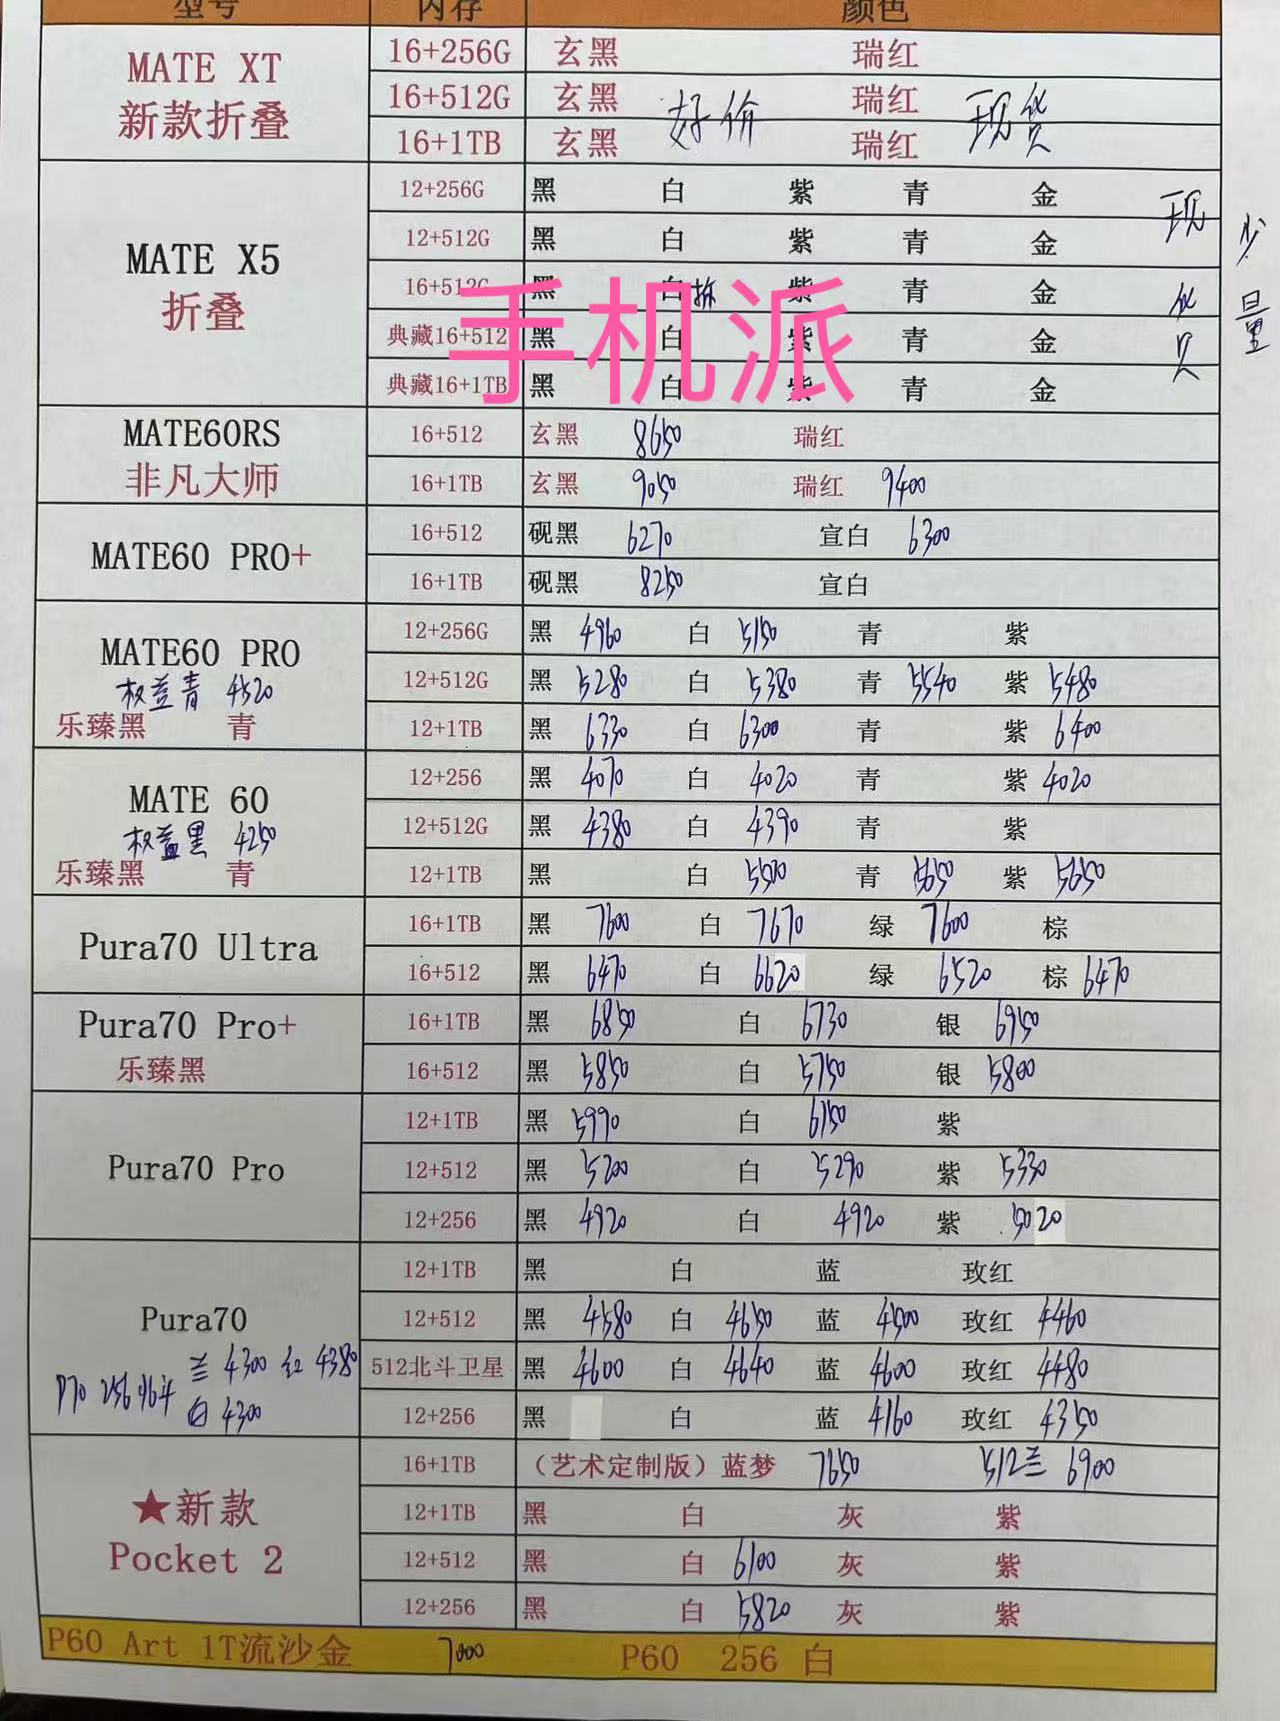 型号 内存 颜色
MATE XT
新款折叠
16+256G 玄黑 瑞红
16+512G 玄黑 好价 瑞红 现货
16+1TB 玄黑 瑞红
MATE X5
折叠
12+256G 黑 白 紫 青 金 现货 少量
12+512G 黑 白 紫 青 金
16+512G 黑 白 拆 紫 青 金
典藏16+512 黑 白 紫 青 金
典藏16+1TB 黑 白 紫 青 金
手机派
MATE60RS
非凡大师
16+512 玄黑 8650 瑞红
16+1TB 玄黑 9050 瑞红 9400
MATE60 PRO+
16+512 砚黑 6270 宣白 6300
16+1TB 砚黑 8250 宣白
MATE60 PRO
权益青 4520
乐臻黑 青
12+256G 黑 4960 白 5150 青 紫
12+512G 黑 5280 白 5380 青 5540 紫 5480
12+1TB 黑 6330 白 6300 青 紫 6400
MATE 60
权益黑 4250
乐臻黑 青
12+256 黑 4070 白 4020 青 紫 4020
12+512G 黑 4380 白 4390 青 紫
12+1TB 黑 白 5500 青 5650 紫 5650
Pura70 Ultra
16+1TB 黑 7600 白 7670 绿 7600 棕
16+512 黑 6470 白 6620 绿 6520 棕 6470
Pura70 Pro+
乐臻黑
16+1TB 黑 6850 白 6730 银 6950
16+512 黑 5850 白 5750 银 5800
Pura70 Pro
12+1TB 黑 5990 白 6150 紫
12+512 黑 5200 白 5290 紫 5330
12+256 黑 4920 白 4920 紫 5020
Pura70
兰 4300 红 4380
P70 256 北斗 白 4300
12+1TB 黑 白 蓝 玫红
12+512 黑 4580 白 4650 蓝 4500 玫红 4460
512北斗卫星 黑 4600 白 4640 蓝 4600 玫红 4480
12+256 黑 白 蓝 4160 玫红 4350
★新款
Pocket 2
16+1TB （艺术定制版）蓝梦 7650 512兰 6900
12+1TB 黑 白 灰 紫
12+512 黑 白 6100 灰 紫
12+256 黑 白 5820 灰 紫
P60 Art 1T流沙金 7000 P60 256 白